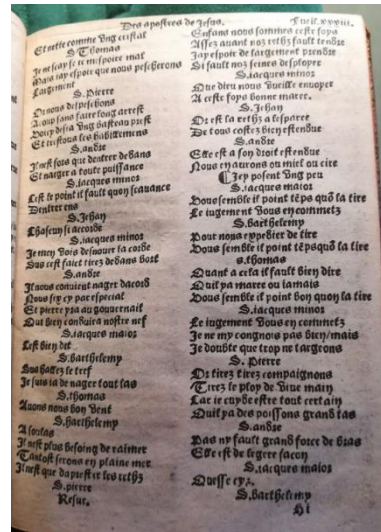 Des apostres de Jesus.
Fueil.xxxiii.
Et nette comme ung cristal
S Thomas
Je ne scay se ie m'espoire mal
Mais iay espoir que nous pescherons
Largement
S. Pierre
Or nous despeschons
A coup sans faire long arrest
Voicy desia ung basteau prest
Et trestous les habillemens
S. andre
Il nest fors que dentrer dedans
Et nager a toute puissance
S. iacques minor
Cest le point il fault quon scauance
Dentrer ens
S. Jehan
Chascun si accorde
S. iacques minor
Je men vois desnouer la corde
Sus cest faict tirez dedans bort
S. andre
Il nous conuient nager dacord
Nous sex cy par especial
Et pierre yra au gouuernail
Qui bien conduira nostre nef
S. iacques maior
Cest bien dit
S. barthelemy
Sus haussez le tref
Je suis ia de nager tout las
S. thomas
Auons nous bon vent
S. barthelemy
A soulas
Il nest plus besoing de raimer
Tantost serons en plaine mer
Il nest que daprester les rethz
S. pierre
Resur.
Enfans nous sommes ceste fois
Assez auant noz rethz fault tendre
Jay espoir de largement prendre
Si fault noz seines desployer
S. iacques minor
Que dieu nous vueille enuoyer
A ceste foys bonne maree.
S. Jehan
Or est la rethz a lesparee
De tous costez bien estendue
S. andre
Elle est a son droit estendue
Nous en aurons ou miel ou cire
¶ Icy posent ung peu
S. iacques maior
Vous semble il point tēps quō la tire
Le iugement vous en commetz
S. barthelemy
Pour nous expedier de tire
Vous semble il point tēpsquō la tire
s. thomas
Quant a cela il fault bien dire
Quil ya maree ou iamais
Vous semble il point bon quon la tire
S. iacques minor
Le iugement vous en commetz
Je ne my congnois pas bien/mais
Je doubte que trop ne targeons
S. Pierre
Or tirez tirez compaignons
Tirez le ploy de viue main
Car ie cuyde estre tout certain
Quil ya des poissons grand tas
S. andre
Pas ny fault grand force de bras
Elle est de legere facon
S. iacques maior
Quesse cy.
S. barthelemy